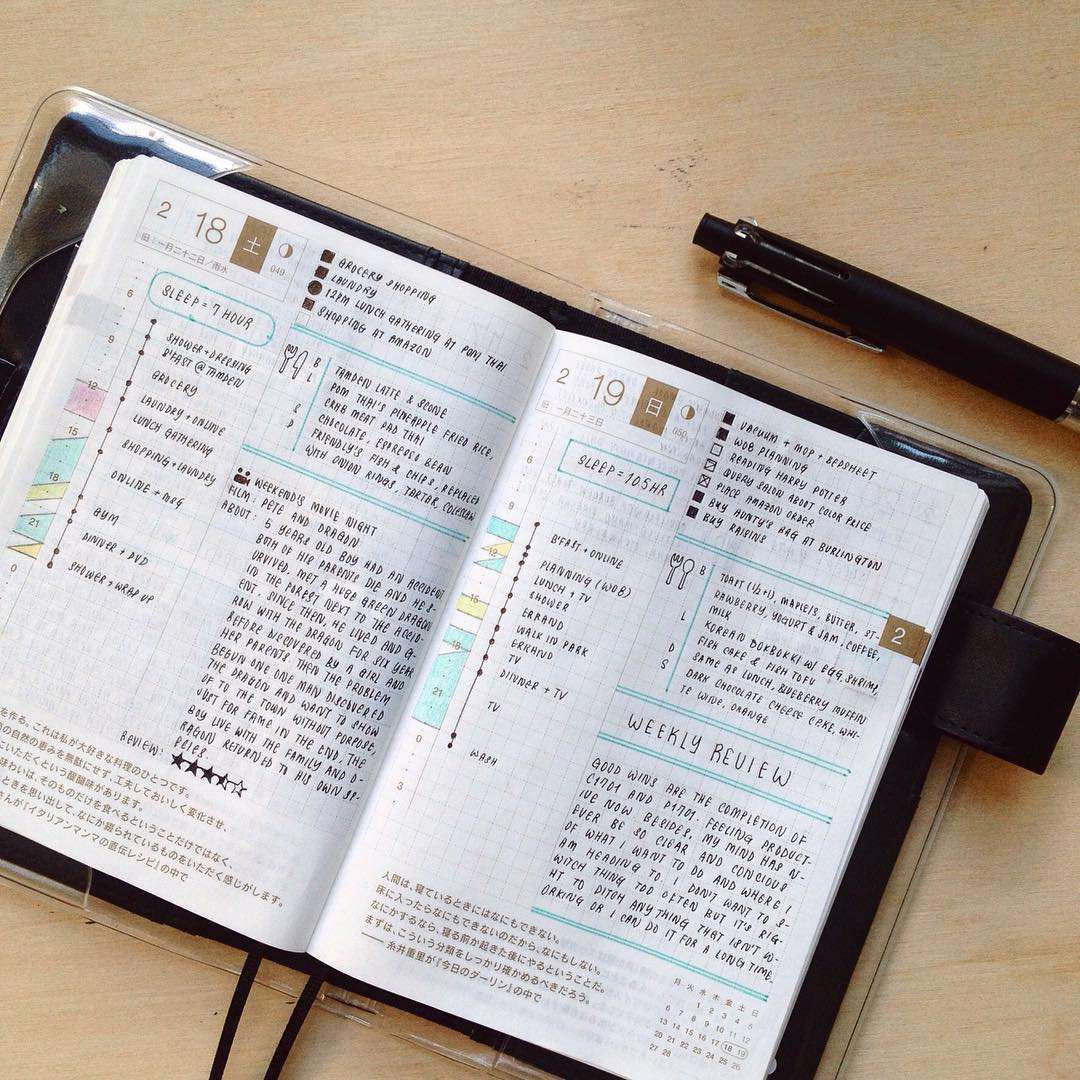 2 18 土
049
旧:一月二十二日/雨水
GROCERY SHOPPING
LAUNDRY
12PM LUNCH GATHERING AT POM THAI
SHOPPING AT AMAZON
SLEEP = 7 HOUR
6
9
12
15
18
21
0
SHOWER + DRESSING
B'FAST @ TAMDEN
GROCERY
LAUNDRY + ONLINE
LUNCH GATHERING
SHOPPING + LAUNDRY
ONLINE + MSG
GYM
DINNER + DVD
SHOWER + WRAP UP
B
L
S
D
TAMDEN LATTE & SCONE
POM THAI'S PINEAPPLE FRIED RICE,
CRAB MEAT PAD THAI
CHOCOLATE, ESPRESSO BEAN
FRIENDLY'S FISH & CHIPS, REPLACED
WITH ONION RINGS, TARTAR, COLESLAW
WEEKEND'S MOVIE NIGHT
FILM: PETE AND DRAGON
ABOUT: 5 YEARS OLD BOY HAD AN ACCIDENT
BOTH OF HIS PARENTS DIE AND HE S-
URVIVED, MET A HUGE GREEN DRAGON
IN THE FOREST NEXT TO THE ACCID-
ENT. SINCE THEN, HE LIVED AND G-
ROW WITH THE DRAGON FOR SIX YEAR
BEFORE DISCOVERED BY A GIRL AND
HER PARENTS THEN THE PROBLEM
BEGUN ONE MAN DISCOVERED
THE DRAGON AND WANT TO SHOW
OF TO THE TOWN WITHOUT PURPOSE,
JUST FOR FAME. IN THE END, THE
BOY LIVE WITH THE FAMILY AND D-
RAGON RETURNED TO HIS OWN SP-
EIES.
REVIEW: ★★★★☆
を作る。これは私が大好きな料理のひとつです。
の自然の恵みを無駄にせず、工夫しておいしく変化させ、
にいただくという醍醐味があります。
味わいは、そのものだけを食べるということだけではなく、
ときを思い出して、なにか頼られているものをいただく感じがします。
さんが『イタリアンマンマの直伝レシピ』の中で
2 19 日
050
旧:一月二十三日
VACUUM + MOP + BEDSHEET
WOB PLANNING
READING HARRY POTTER
QUERY SALON ABOUT COLOR PRICE
PLACE AMAZON ORDER
BUY AUNTY'S BAG AT BURLINGTON
BUY RAISINS
SLEEP = 10.5 HR
6
9
12
15
18
21
0
3
B'FAST + ONLINE
PLANNING (WOB)
LUNCH + TV
SHOWER
ERRAND
WALK IN PARK
ERRAND
TV
DINNER + TV
TV
WASH
B
L
D
S
TOAST (1/2+1), MAPLE/S, BUTTER, ST-
RAWBERRY, YOGURT & JAM, COFFEE,
MILK
KOREAN BOKBOKKI W/ EGG, SHRIMP,
FISH CAKE & FISH TOFU
SAME AS LUNCH, BLUEBERRY MUFFIN
DARK CHOCOLATE CHEESE CAKE, WHI-
TE WINE, ORANGE
2
WEEKLY REVIEW
GOOD WINS ARE THE COMPLETION OF
C1701 AND D1701. FEELING PRODUCT-
IVE NOW. BESIDES, MY MIND HAS N-
EVER BE SO CLEAR AND CONCIOUS
OF WHAT I WANT TO DO AND WHERE I
AM HEADING TO. I DON'T WANT TO S-
WITCH THING TOO OFTEN BUT IT'S RIG-
HT TO DITCH ANYTHING THAT ISN'T W-
ORKING OR I CAN DO IT FOR A LONG TIME.
人間は、寝ているときにはなにもできない。
床に入ったらなにもできないのだから、なにもしない。
なにかするなら、寝る前か起きた後にやるということだ。
まずは、こういう分類をしっかり確かめるべきだろう。
——糸井重里が『今日のダーリン』の中で
月 火 水 木 金 土 日
1 2 3 4 5
6 7 8 9 10 11 12
13 14 15 16 17 18 19
20 21 22 23 24 25 26
27 28